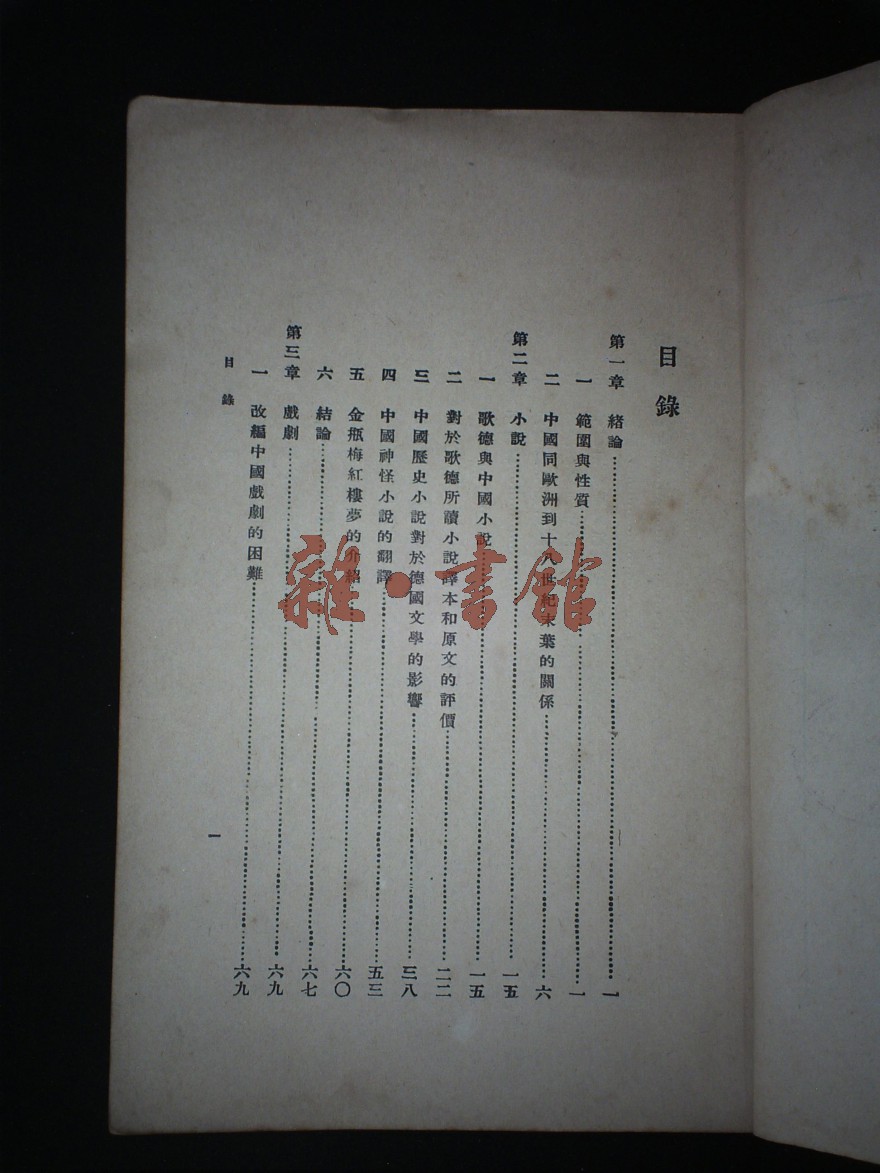 目錄
第一章 緒論……一
一 範圍與性質……一
二 中國同歐洲到十八世紀末葉的關係……六
第二章 小說……一五
一 歌德與中國小說……一五
二 對於歌德所讀小說譯本和原文的評價……二二
三 中國歷史小說對於德國文學的影響……三八
四 中國神怪小說的翻譯……五三
五 金瓶梅紅樓夢的介紹……六〇
六 結論……六七
第三章 戲劇……六九
一 改編中國戲劇的困難……六九
目錄
一
雜·書館